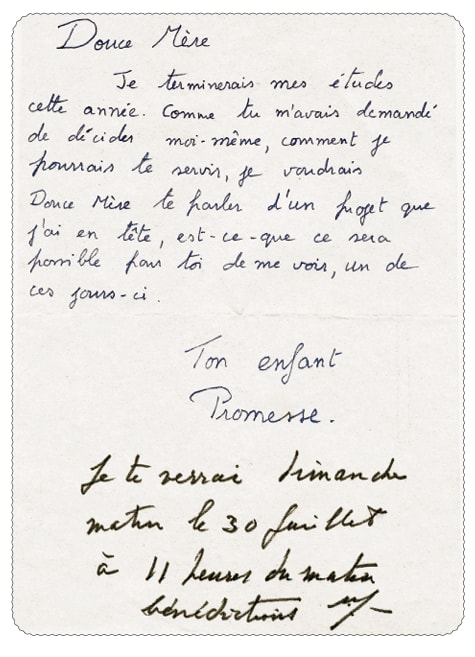 Douce Mère
Je terminerais mes études
cette année. Comme tu m'avais demandé
de décider moi-même, comment je
pourrais te servir, je voudrais
Douce Mère te parler d'un projet que
j'ai en tête, est-ce-que ce sera
possible pour toi de me voir, un de
ces jours-ci.
Ton enfant
Promesse.
Je te verrai dimanche
matin le 30 Juillet
à 11 heures du matin
bénédictions